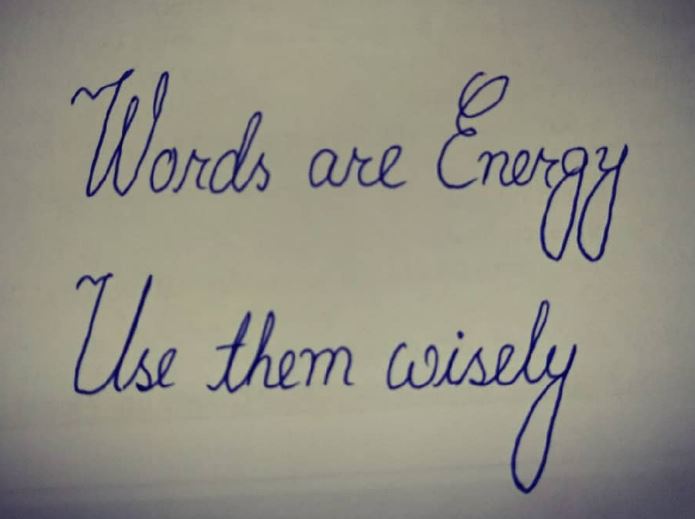 Words are Energy
Use them wisely